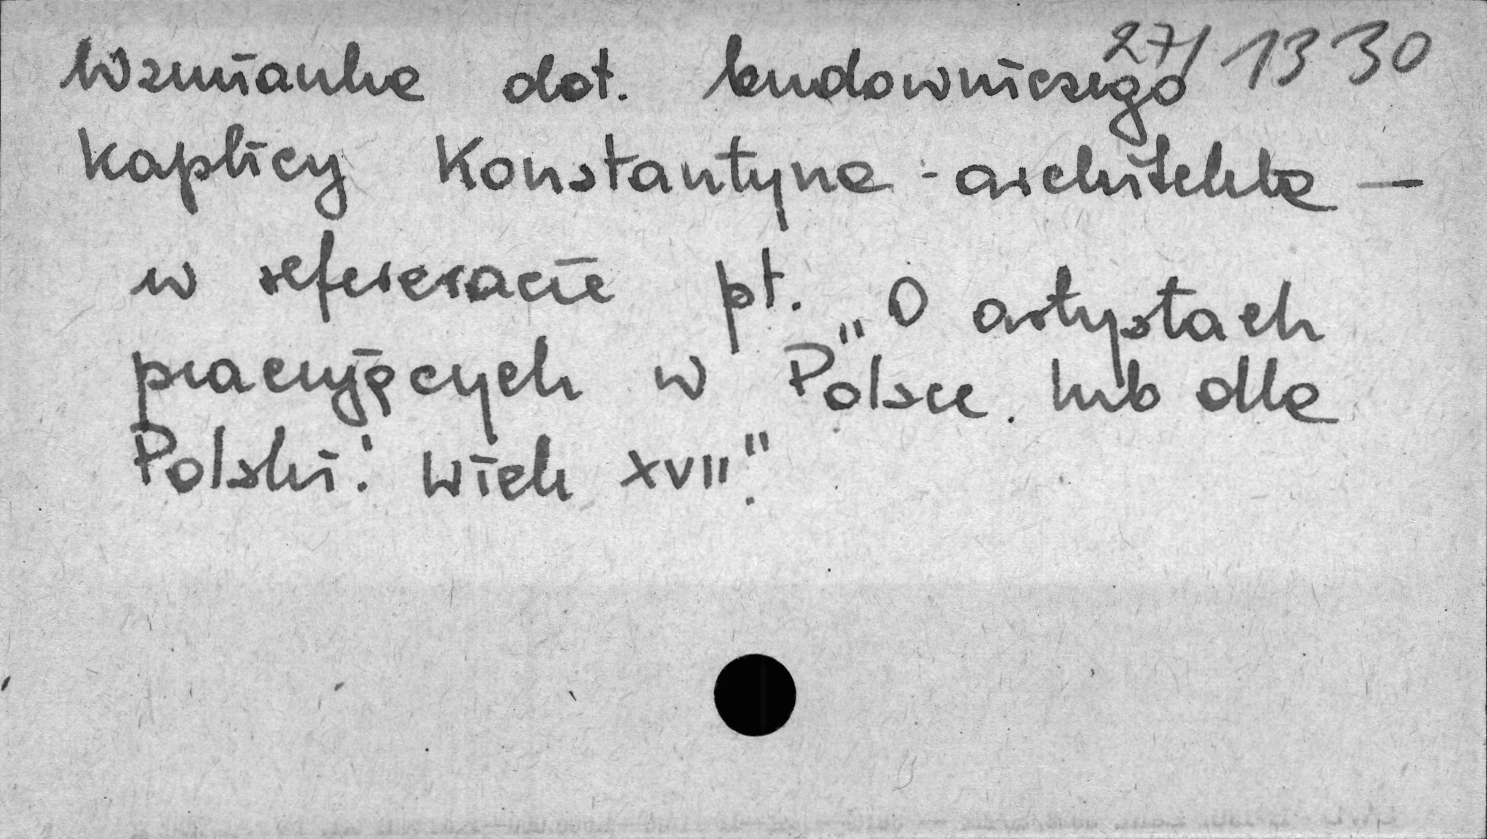 27/1330
Wzmianka dot. budowniczego
kaplicy Konstantyna - architekta —
w refereracie pt. „O artystach
pracujących w Polsce lub dla
Polski: wiek XVII".